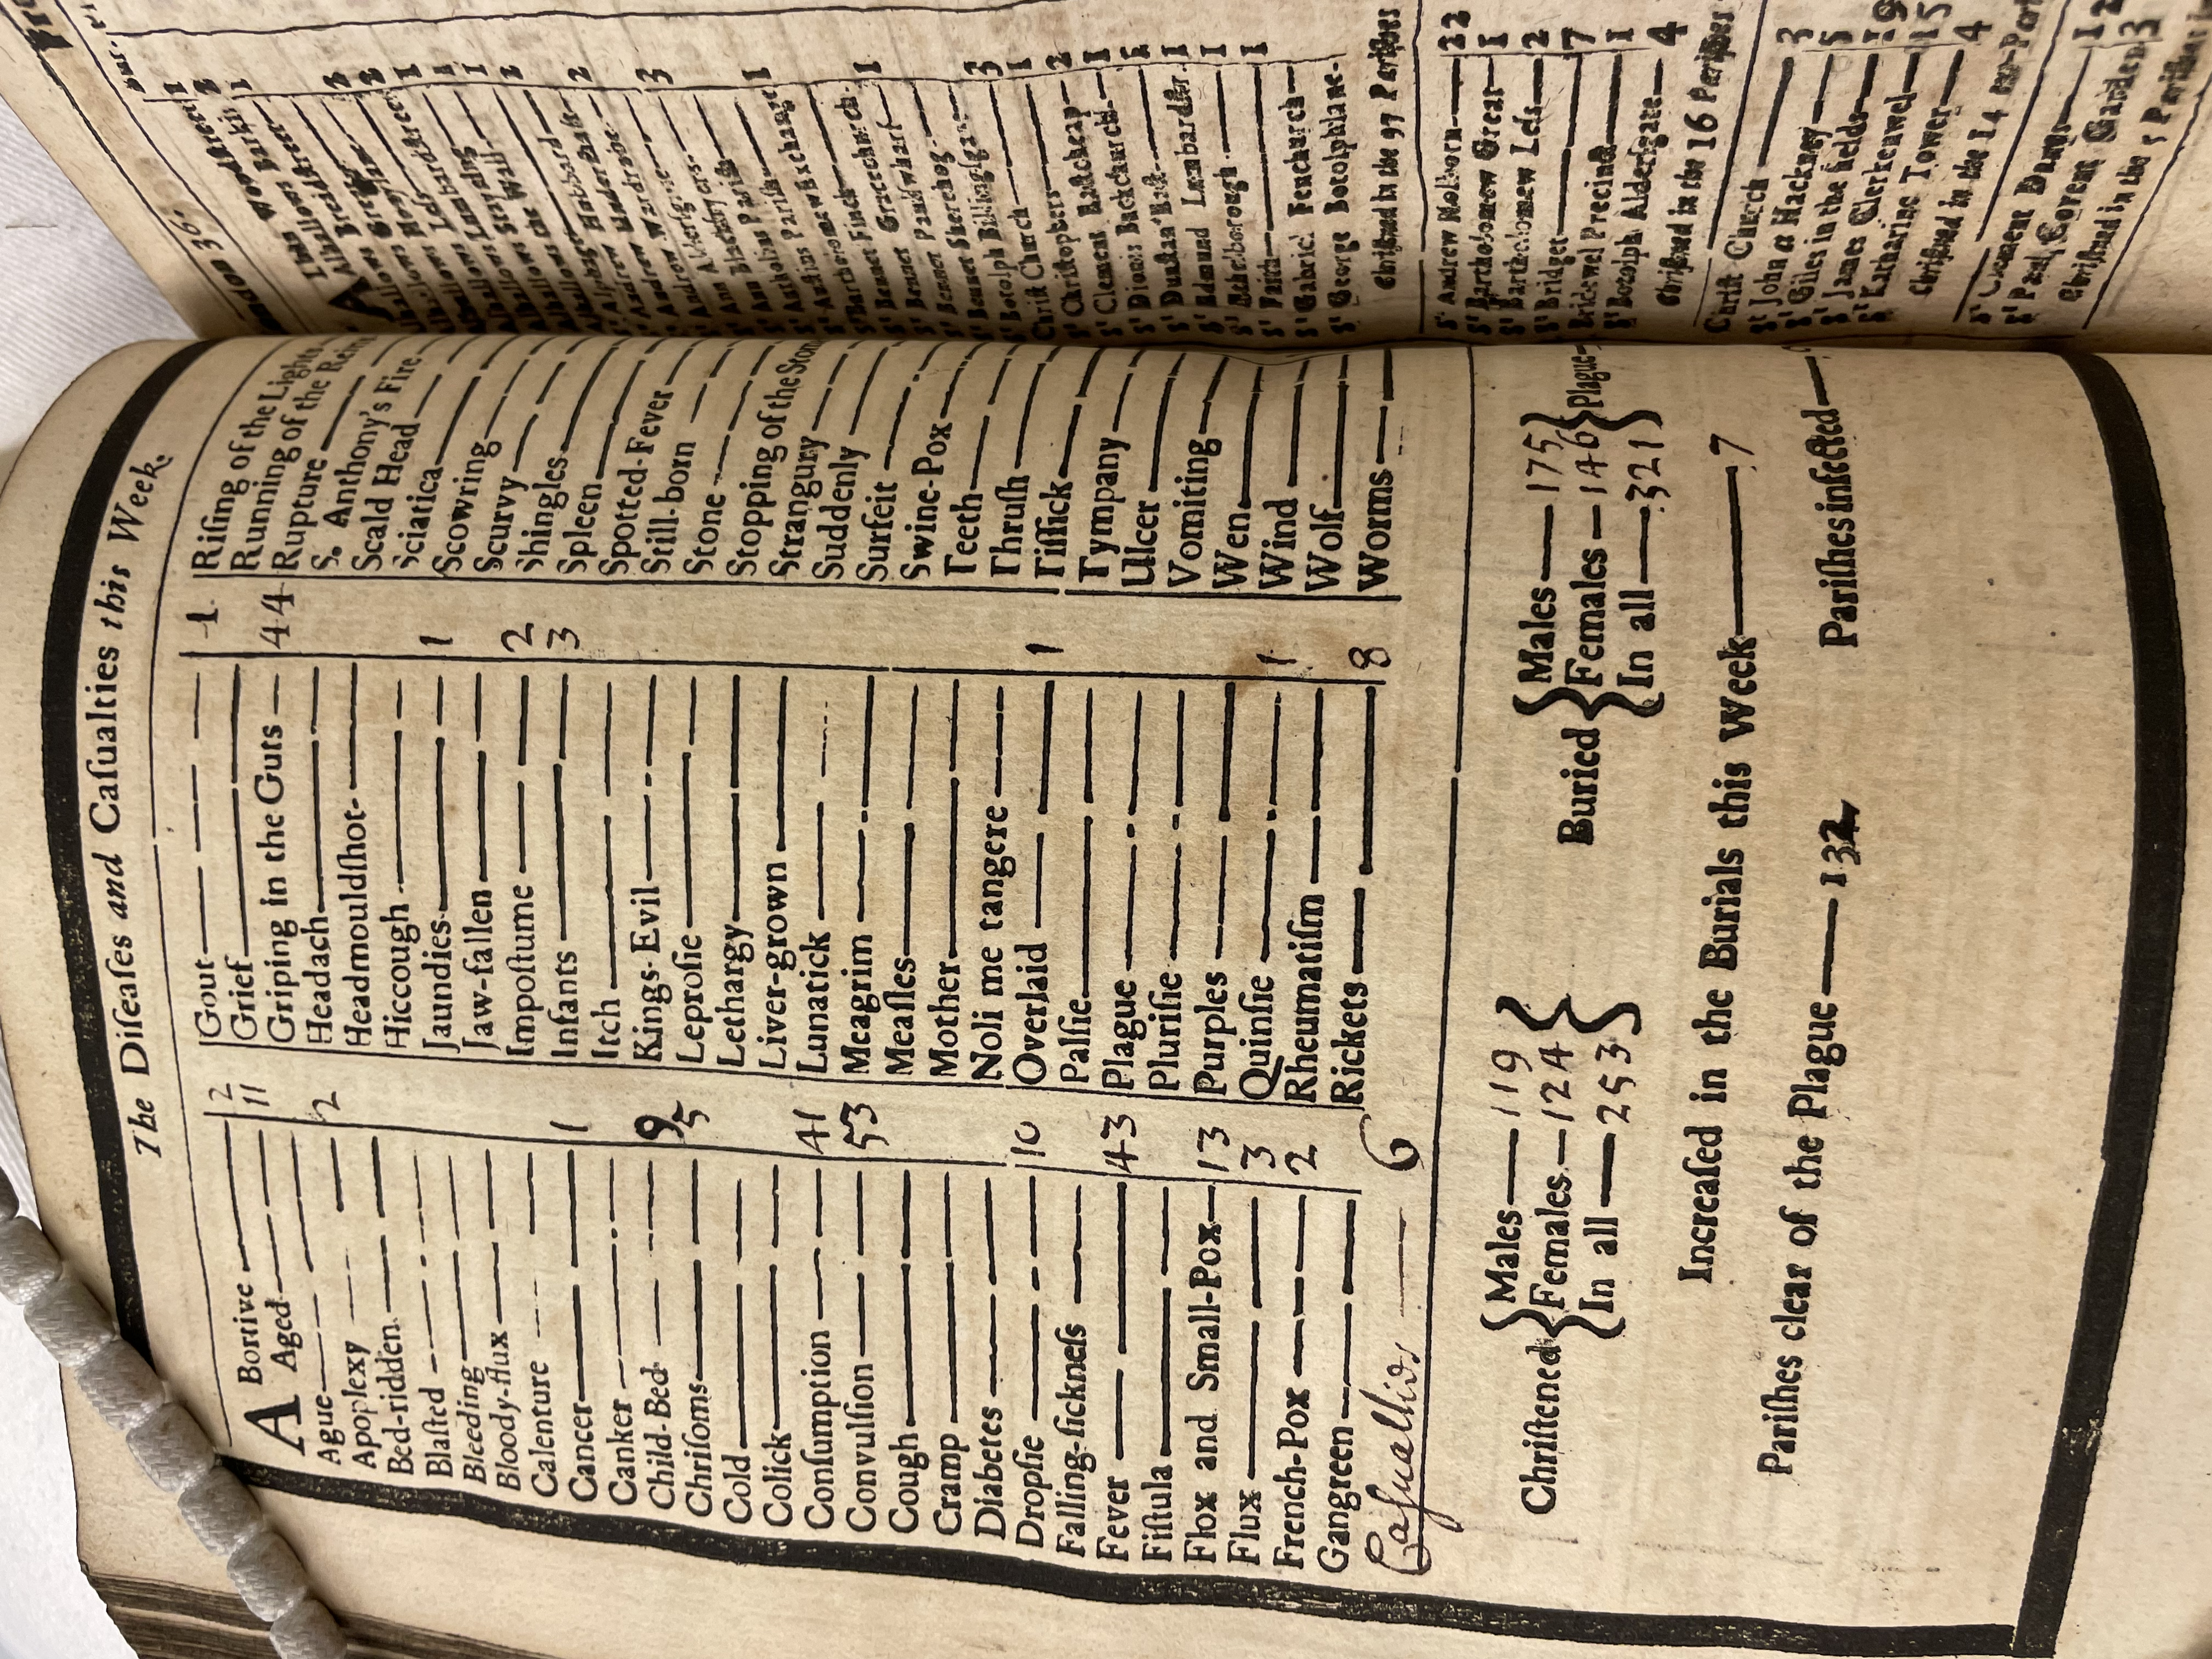 The Diſeaſes and Caſualties this Week.
ABortive 2
Aged 11
Ague
Apoplexy 2
Bed-ridden
Blaſted
Bleeding
Bloody-flux
Calenture
Cancer 1
Canker
Child-Bed 9
Chriſoms 5
Cold
Colick
Conſumption 41
Convulſion 53
Cough
Cramp
Diabetes
Dropſie 10
Falling-ſickneſs
Fever 43
Fiſtula
Flox and Small-Pox 13
Flux 3
French-Pox 2
Gangreen
Caſualtids 6
Gout 1
Grief
Griping in the Guts 44
Headach
Headmouldſhot
Hiccough
Jaundies 1
Jaw-fallen
Impoſtume 2
Infants 3
Itch
Kings-Evil
Leproſie
Lethargy
Liver-grown
Lunatick
Meagrim
Meaſles
Mother
Noli me tangere
Overlaid 1
Palſie
Plague
Pluriſie
Purples
Quinſie 1
Rheumatiſm
Rickets 8
Riſing of the Lights
Running of the Rein
Rupture
S. Anthony's Fire
Scald Head
Sciatica
Scowring
Scurvy
Shingles
Spleen
Spotted-Fever
Still-born
Stone
Stopping of the Stom
Strangury
Suddenly
Surfeit
Swine-Pox
Teeth
Thruſh
Tiſſick
Tympany
Ulcer
Vomiting
Wen
Wind
Wolf
Worms
Chriſtened { Males 119
Females 124
In all 253 }
Buried { Males 175
Females 146
In all 321 } Plague
Increaſed in the Burials this Week 7
Pariſhes clear of the Plague 132 Pariſhes infected
36.
Alban Woodſtreet 1
Alhallows Barkin 2
Alhallows Breadſtreet 1
Alhallows Great
Alhallows Honylane 3
Alhallows Leſs 2
Alhallows Lumbardſtreet 1
Alhallows Staining 1
Alhallows the Wall 1
Alphage
Andrew Hubbard 2
Andrew Underſhaft
Andrew Wardrobe 3
Ann Alderſgate
Ann Blackfryers
Antholins Pariſh 1
Auſtins Pariſh
Bartholomew Exchange
Bennet Finck 1
Bennet Gracechurch
Bennet Paulſwharf
Bennet Sherehog 3
Botolph Billingſgate 1
Chriſt Church 2
Sᵗ Chriſtophers 1
Sᵗ Clement Eaſtcheap
Sᵗ Dionis Backchurch 1
Sᵗ Dunſtan Eaſt 1
Sᵗ Edmund Lumbardſtr. 1
Sᵗ Ethelborough
Sᵗ Faith
Sᵗ Gabriel Fenchurch
Sᵗ George Botolphlane
Chriſtned in the 97 Pariſhes
Sᵗ Andrew Holborn 22
Sᵗ Bartholomew Great 1
Sᵗ Bartholomew Leſs 2
Sᵗ Bridget 7
Bridewel Precinct 1
Sᵗ Botolph Alderſgate 4
Chriſtned in the 16 Pariſhes
Chriſt Church 3
Sᵗ John at Hackney 5
Sᵗ Giles in the fields 19
Sᵗ James Clerkenwel 15
Sᵗ Katharine Tower 4
Chriſtned in the 14 out-Par
Sᵗ Clement Danes 12
Sᵗ Paul Covent Garden 3
Chriſtned in the 5 Pariſhes